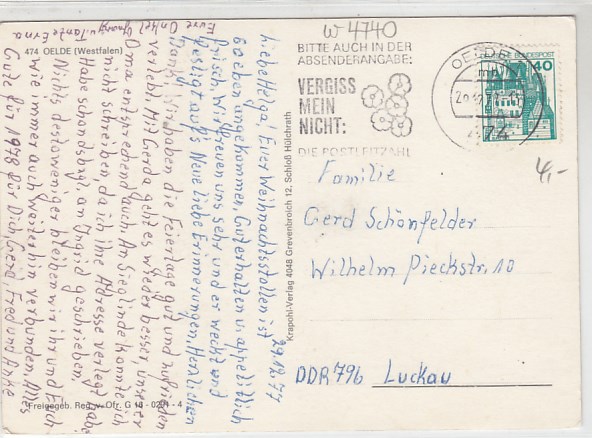 w 4740
474 OELDE (Westfalen)
BITTE AUCH IN DER
ABSENDERANGABE:
VERGISS
MEIN
NICHT:
DIE POSTLEITZAHL
OELDE
474
DEUTSCHE BUNDESPOST
40
4,-
29.12.77
Liebe Helga! Euer Weihnachtsstollen ist
soeben angekommen. Gut erhalten u. appetitlich
frisch wir freuen uns sehr und er weckt und
festigt aufs Neue liebe Erinnerungen. Herzlichen
Dank! Wir haben die Feiertage gut und zufrieden
verlebt. Mit Gerda geht es wieder besser, unserer
Oma entsprechend auch. An Sieglinde konnte ich
nicht schreiben da ich Ihre Adresse verlegt habe
Habe schon dsbzgl. an Ingrid geschrieben.
Nichts destoweniger bleiben wir ihr und Euch
wie immer auch weiterhin verbunden. Alles
Gute für 1978 für Dich, Gerd, Fred und Anke
Eure Onkel Georg u. Tante Erna
Krapohl-Verlag 4048 Grevenbroich 12, Schloß Hülchrath
Familie
Gerd Schönfelder
Wilhelm Pieckstr. 10
DDR 796 Luckau
Freigegeb. Reg. v. Ofr. G 18 - 0291 - 4